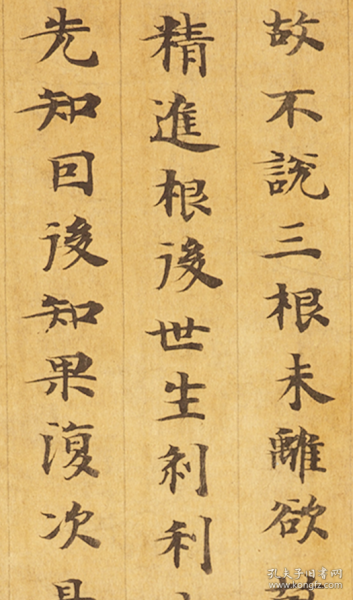 故不說三根未離欲
精進根後世生利利
先知因後知果復次
孔夫子旧书网
www.kongfz.com